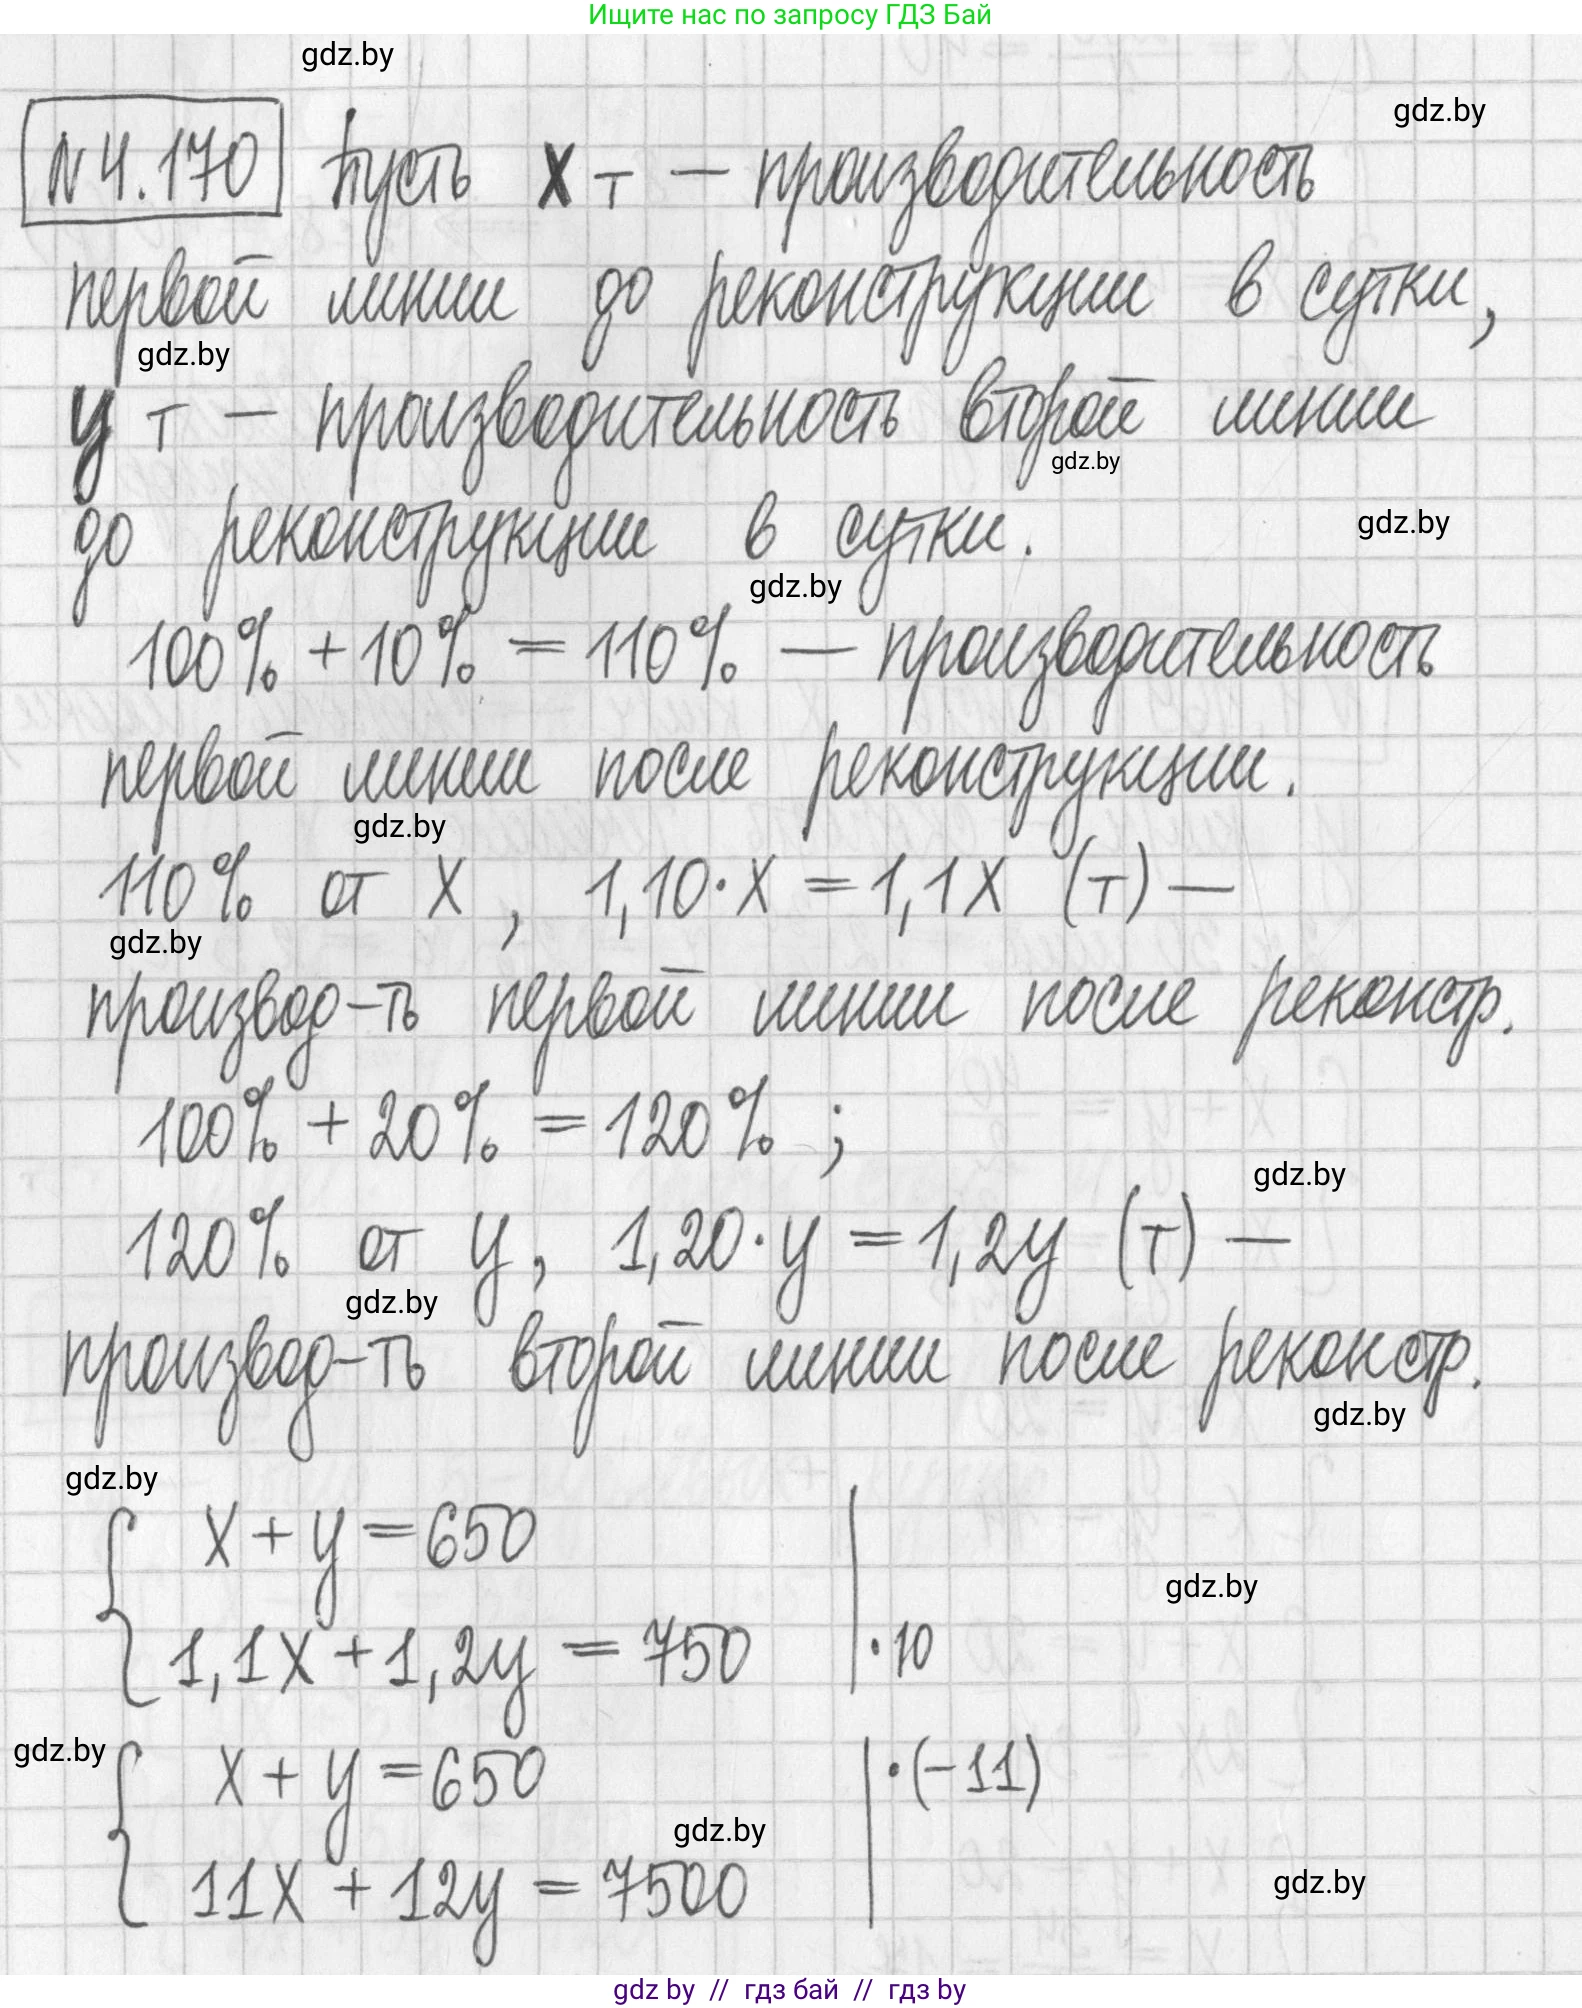 Ищите нас по запросу ГДЗ Бай
gdz.by
gdz.by
N 4.170 Пусть x т — производительность
первой линии до реконструкции в сутки,
gdz.by
y т — производительность второй линии
gdz.by
gdz.by
до реконструкции в сутки.
gdz.by
100% + 10% = 110% — производительность
первой линии после реконструкции.
gdz.by
110% от x, 1,10·x = 1,1x (т) —
gdz.by
производ-ть первой линии после реконстр.
100% + 20% = 120% ;
gdz.by
120% от y, 1,20·y = 1,2y (т) —
gdz.by
производ-ть второй линии после реконстр.
gdz.by
gdz.by
{ x + y = 650 |
gdz.by
1,1x + 1,2y = 750 | ·10
gdz.by
{ x + y = 650 | ·(-11)
gdz.by
11x + 12y = 7500 |
gdz.by
gdz by // гдз бай // гдз by